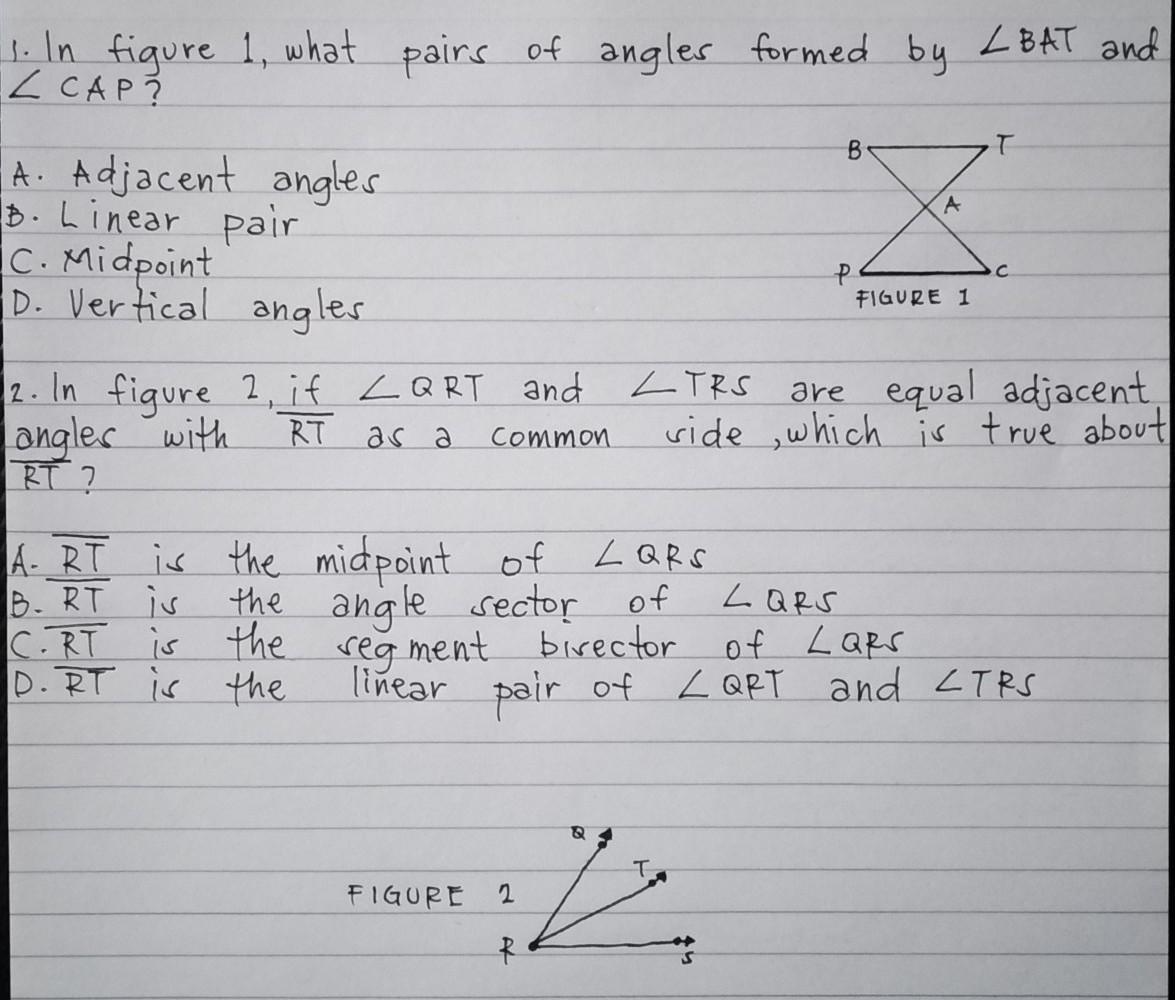 1. In figure 1, what pairs of angles formed by ∠BAT and
∠CAP?
A. Adjacent angles
B. Linear pair
C. Midpoint
D. Vertical angles
B
T
A
P
C
FIGURE 1
2. In figure 2, if ∠QRT and ∠TRS are equal adjacent
angles with R̅T̅ as a common side, which is true about
R̅T̅?
A. R̅T̅ is the midpoint of ∠QRS
B. R̅T̅ is the angle sector of ∠QRS
C. R̅T̅ is the segment bisector of ∠QRS
D. R̅T̅ is the linear pair of ∠QRT and ∠TRS
Q
T
FIGURE 2
R
S